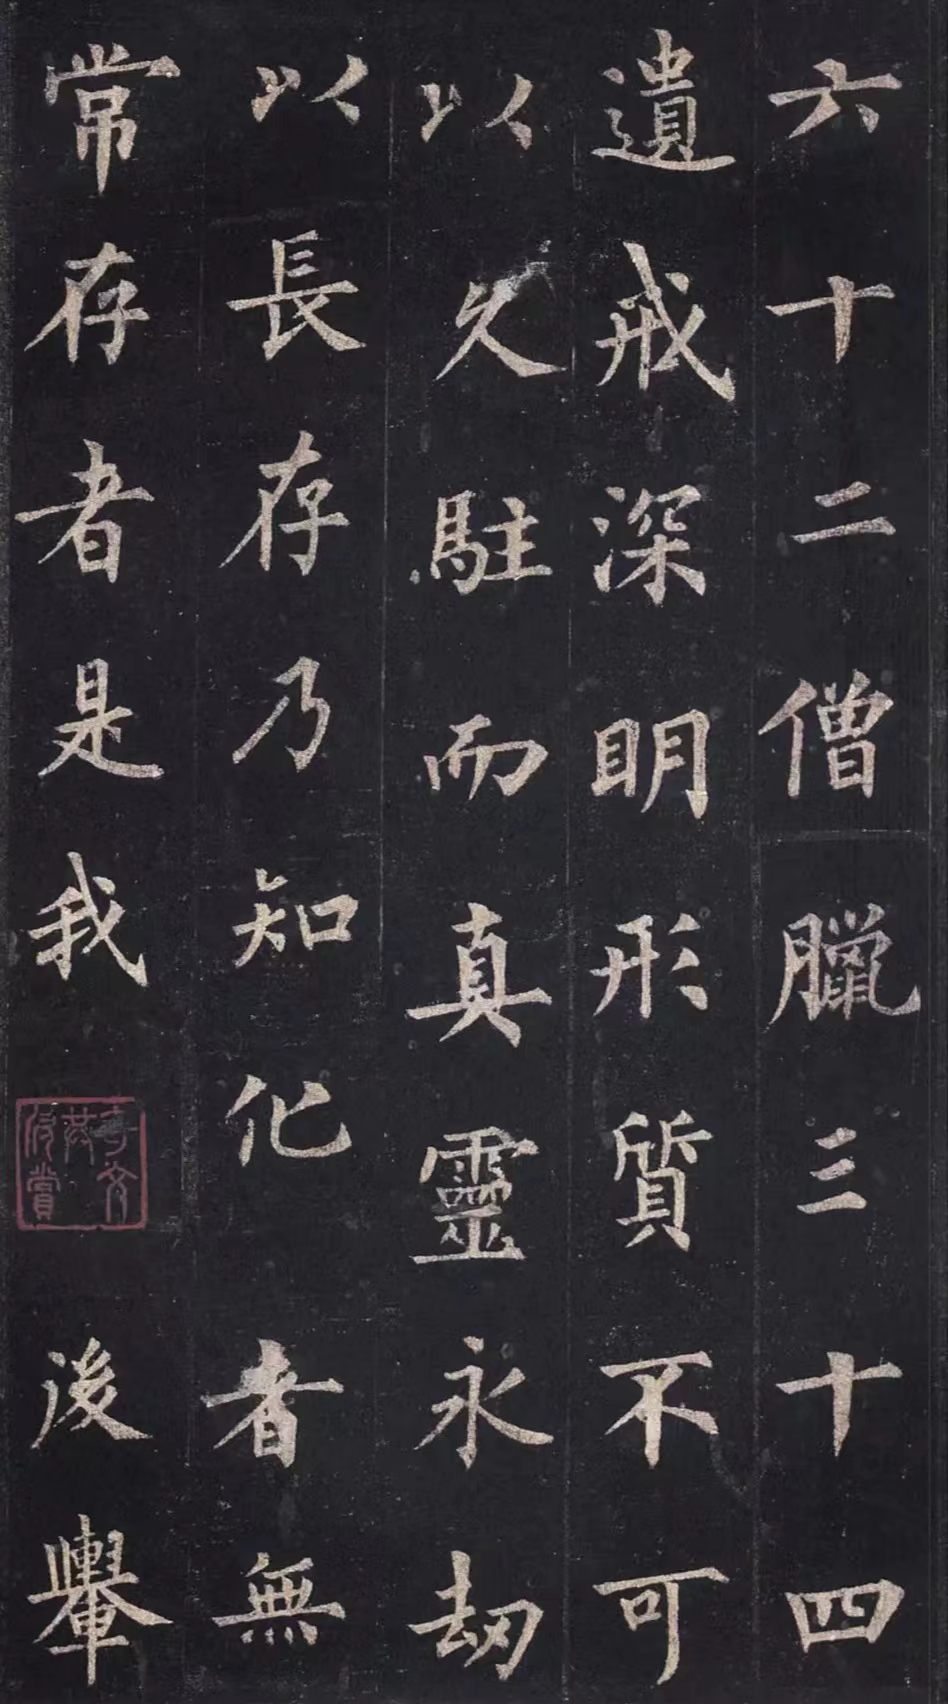 六十二僧臘三十四
遺戒深明形質不可
以久駐而真靈永劫
以長存乃知化者無
常存者是我後轝